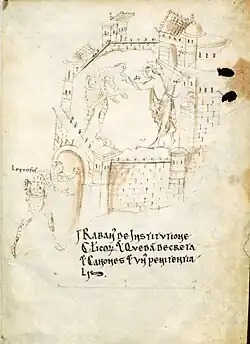 Leprosus
RABAN' DE INSTITUTIONE
CLICOR' & QUEDA DECRETA
& CANONES & UN' PENITENTIA
LIS